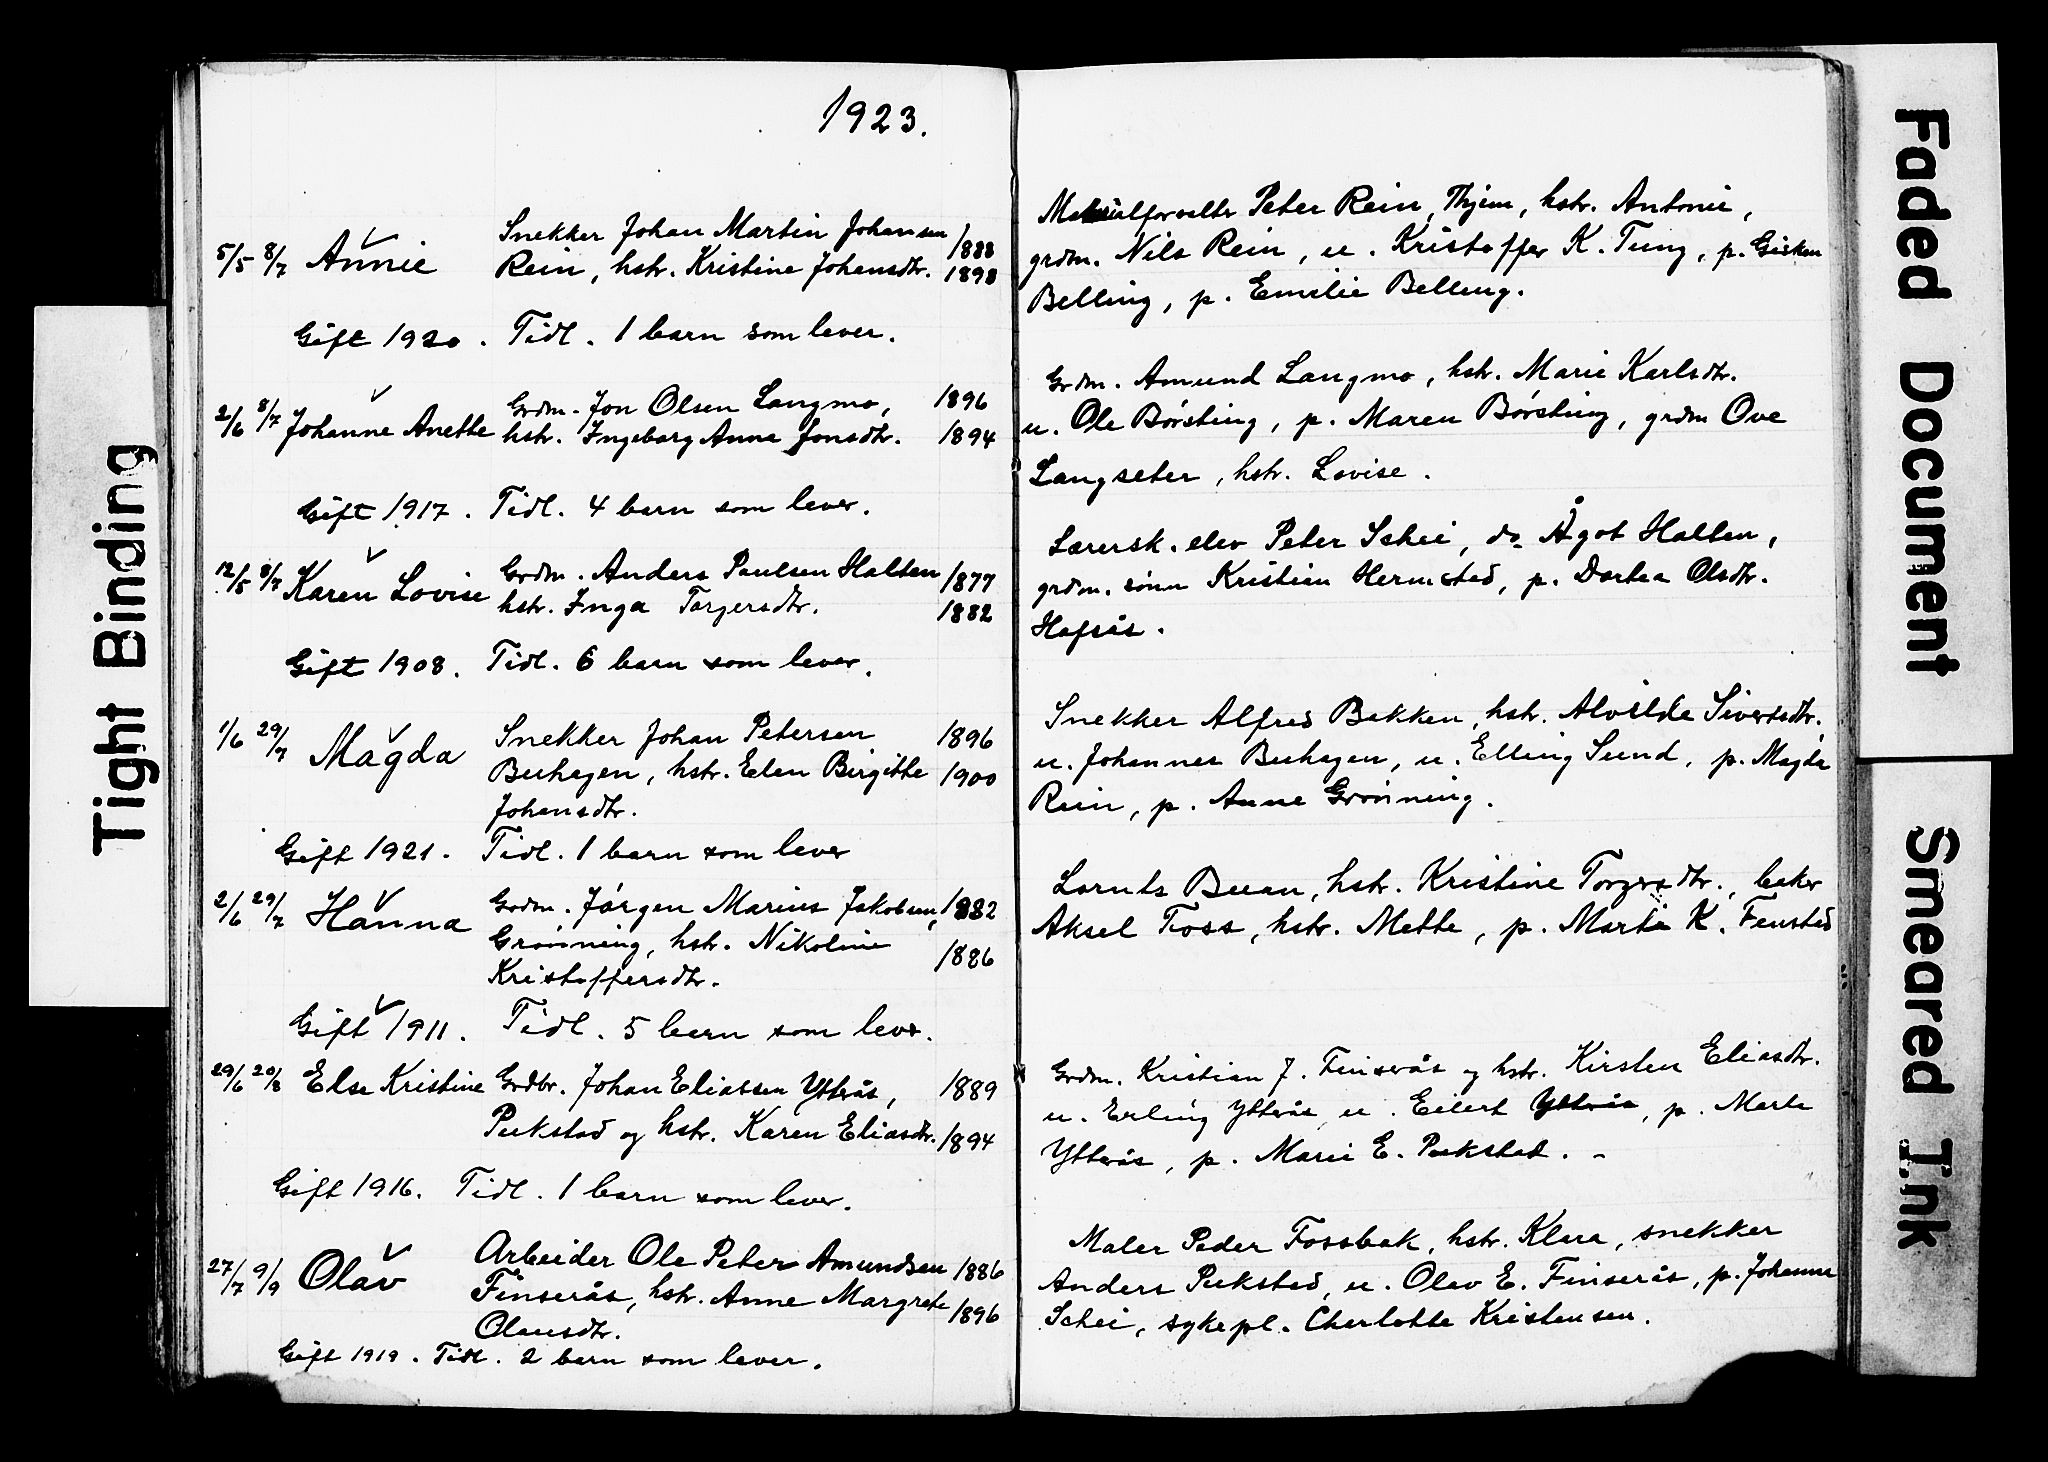 1923.
5/5 8/7 Annie Snekker Johan Martin Johansen /888
Rein, hstr. Kristine Johansdtr. 1898
Gift 1920. Tidl. 1 barn som lever.
2/6 8/7 Johanne Anette Grdm. Jon Olsen Langmo, 1896
hstr. Ingeborg Anna Jonsdtr. 1894
Gift 1917. Tidl. 4 barn som lever.
12/5 8/7 Karen Lovise Grdm. Anders Paulsen Halten 1877
hstr. Inga Torgersdtr. 1882
Gift 1908. Tidl. 6 barn som lever.
1/6 29/7 Magda Snekker Johan Petersen 1896
Buhagen, hstr. Elen Birgitte 1900
Johansdtr.
Gift 1921. Tidl. 1 barn som lever
2/6 29/7 Hanna Grdm. Jørgen Marius Jakobsen, 1882
Grønning, hstr. Nikoline 1886
Kristoffersdtr.
Gift 1911. Tidl. 5 barn som lever.
29/6 20/8 Else Kristine Grdbr. Johan Eliassen Ytterås, 1889
Pukstad og hstr. Karen Eliasdtr. 1894
Gift 1916. Tidl. 1 barn som lever.
27/7 9/9 Olav Arbeider Ole Peter Amundsen 1886
Finserås, hstr. Anne Margrete 1896
Olausdtr.
Gift 1919. Tidl. 2 barn som lever.
Materialforvalter Peter Rein, Thjem, hstr. Antonie,
grdm. Nils Rein, u. Kristoffer K. Tung, p. Gisken
Belling, p. Emilie Belling.
Grdm. Amund Langmo, hstr. Marie Karlsdtr.
u. Ole Børsting, p. Maren Børsting, grdm Ove
Langseter, hstr. Lovise.
Lærersk. elev Peter Schei, do Ågot Halten,
grdm. sønn Kristian Hermstad, p. Dortea Olsdtr.
Hafsås.
Snekker Alfred Bakken, hstr. Alvilde Sivertsdtr.
u. Johannes Buhagen, u. Elling Sund, p. Magda
Rein, p. Anne Grønning.
Lornts Buan, hstr. Kristine Torgersdtr., baker
Aksel Foss, hstr. Mette, p. Marta K. Fenstad
Grdm. Kristian J. Finserås og hstr. Kirsten Eliasdtr.
u. Erling Ytterås u. Eilert Ytterås, p. Marta
Ytterås, p. Marie E. Pukstad. -
Maler Peder Fossbak, hstr. Klara, snekker
Anders Pukstad, u. Olav E. Finserås, p. Johanna
Schei, sykepl. Charlotte Kristensen.
Tight Binding
Faded Document
Smeared Ink